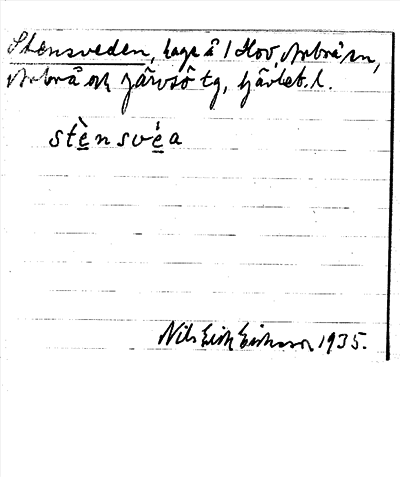 Stensveden, hage å 1 Hov, Arbrå sn,
Arbrå och Järvsö tg, Gävleb. l.
stè̱nsvé̱a
Nils Erik Eriksson 1935.